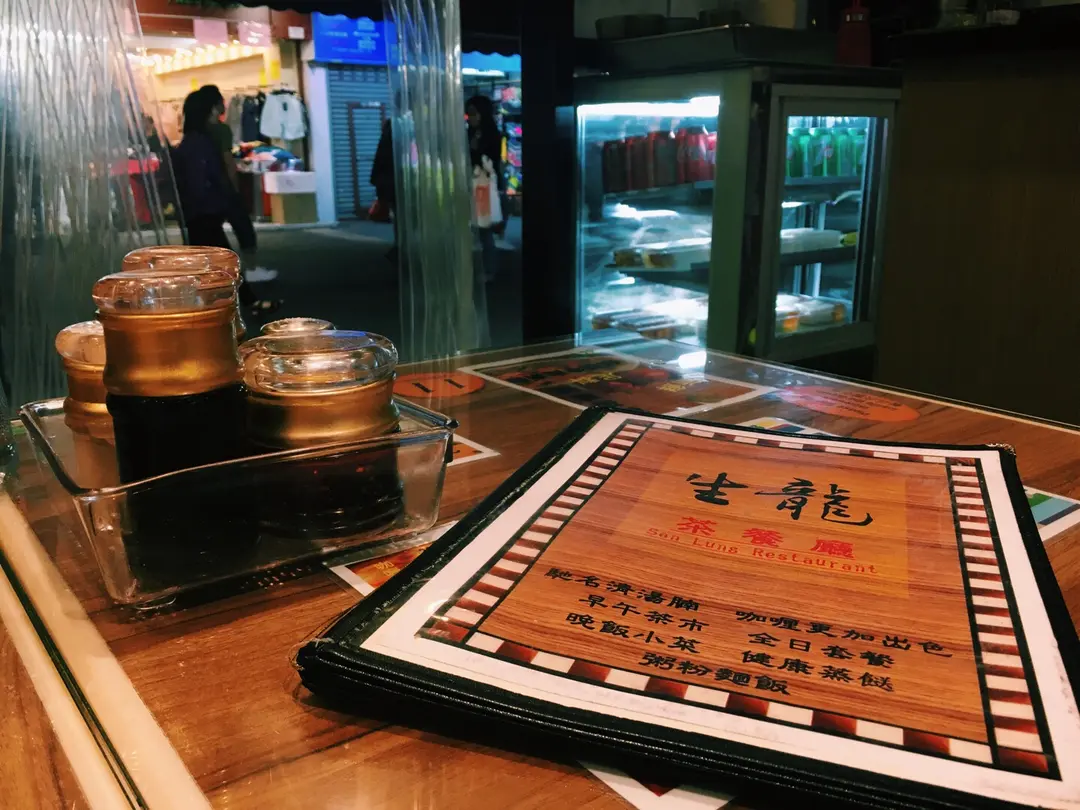 生龍
茶餐廳
San Lung Restaurant
馳名清湯腩 咖喱更加出色
早午茶市 全日套餐
晚飯小菜 健康蒸餸
粥粉麵飯
11